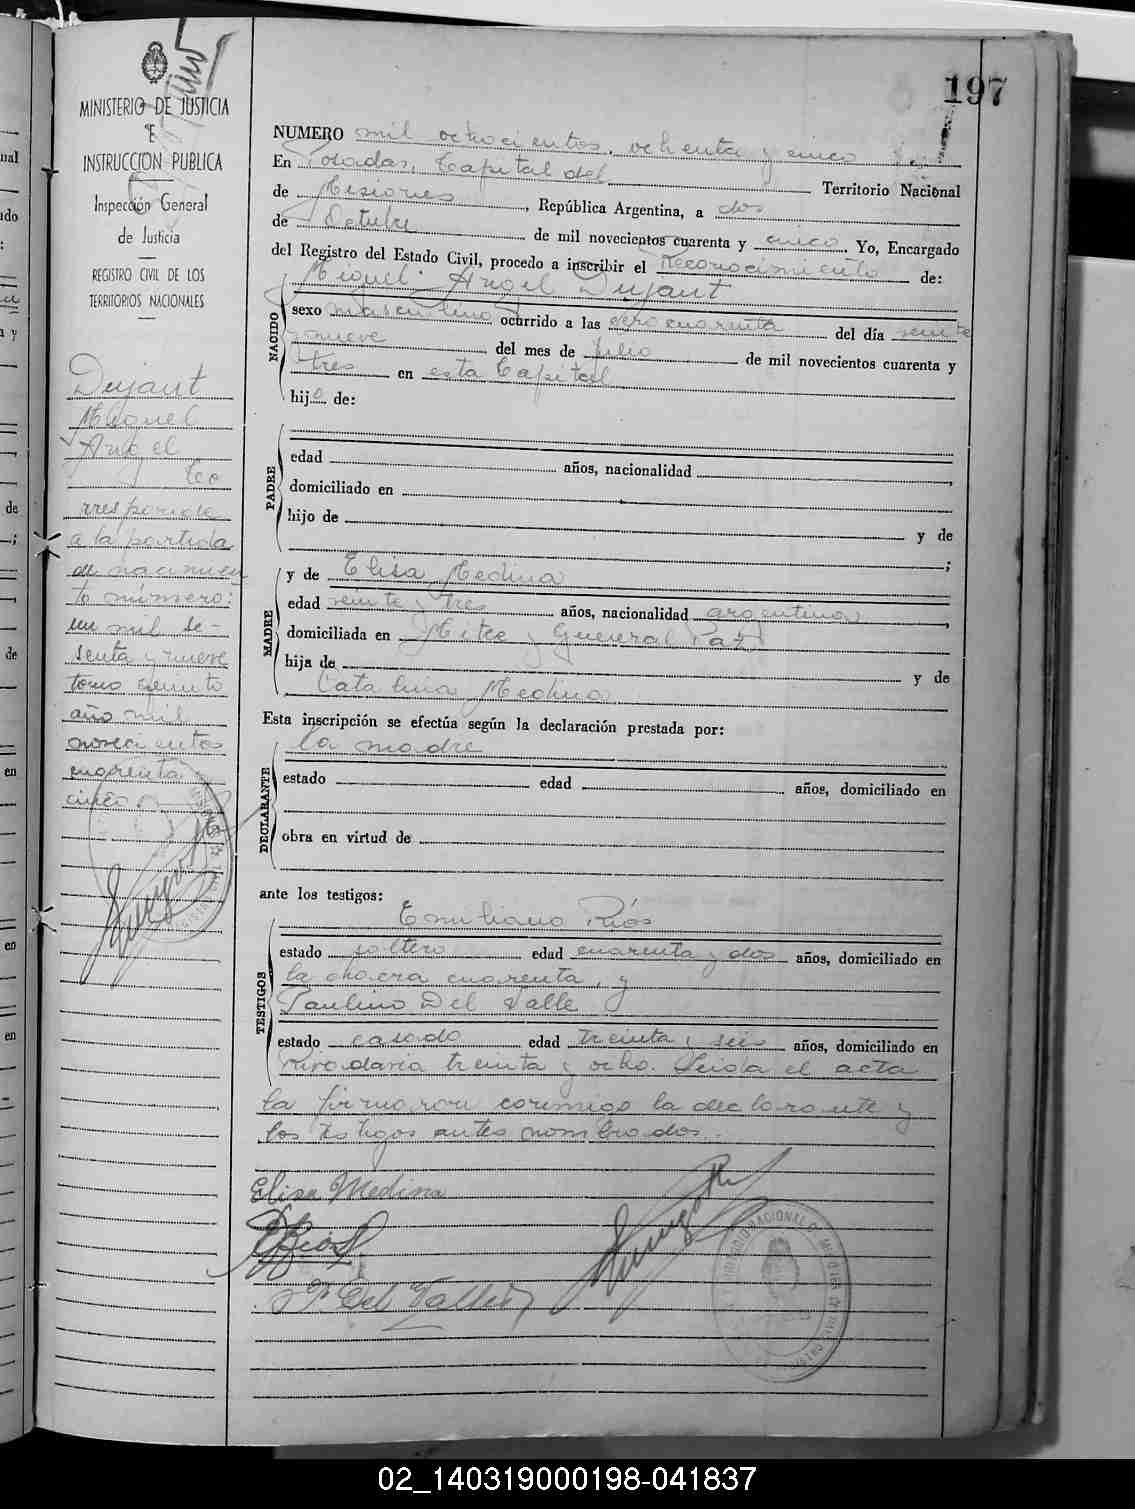 197
MINISTERIO DE JUSTICIA
E
INSTRUCCION PUBLICA
Inspección General
de Justicia
REGISTRO CIVIL DE LOS
TERRITORIOS NACIONALES
Dujaut
Miguel
Angel
Co
rresponde
a la partida
de nacimien
to número:
un mil se-
senta y nueve
tomo quinto
año mil
novecientos
cuarenta
cinco
NUMERO mil ochocientos ochenta y cinco
En Posadas, Capital del Territorio Nacional
de Misiones, República Argentina, a dos
de Octubre de mil novecientos cuarenta y cinco Yo, Encargado
del Registro del Estado Civil, procedo a inscribir el Reconocimiento de:
Miguel Angel Dujaut
NACIDO
sexo masculino ocurrido a las cero cuarenta del día veinte
y nueve del mes de julio de mil novecientos cuarenta y
tres en esta Capital
hijo de:
PADRE
edad años, nacionalidad
domiciliado en
hijo de y de
MADRE
y de Elisa Medina
edad veinte y tres años, nacionalidad argentina
domiciliada en Mitre y General Paz
hija de y de
Catalina Medina
Esta inscripción se efectúa según la declaración prestada por:
la madre
DECLARANTE
estado edad años, domiciliado en
obra en virtud de
ante los testigos:
Emiliano Ríos
TESTIGOS
estado soltero edad cuarenta y dos años, domiciliado en
la chacra cuarenta, y
Paulino Del Valle
estado casado edad treinta y seis años, domiciliado en
Rivadavia treinta y ocho. Leida el acta
la firmaron conmigo la declarante y
los testigos antes nombrados.
Elisa Medina
Ríos
P. Del Valle
02_140319000198-041837